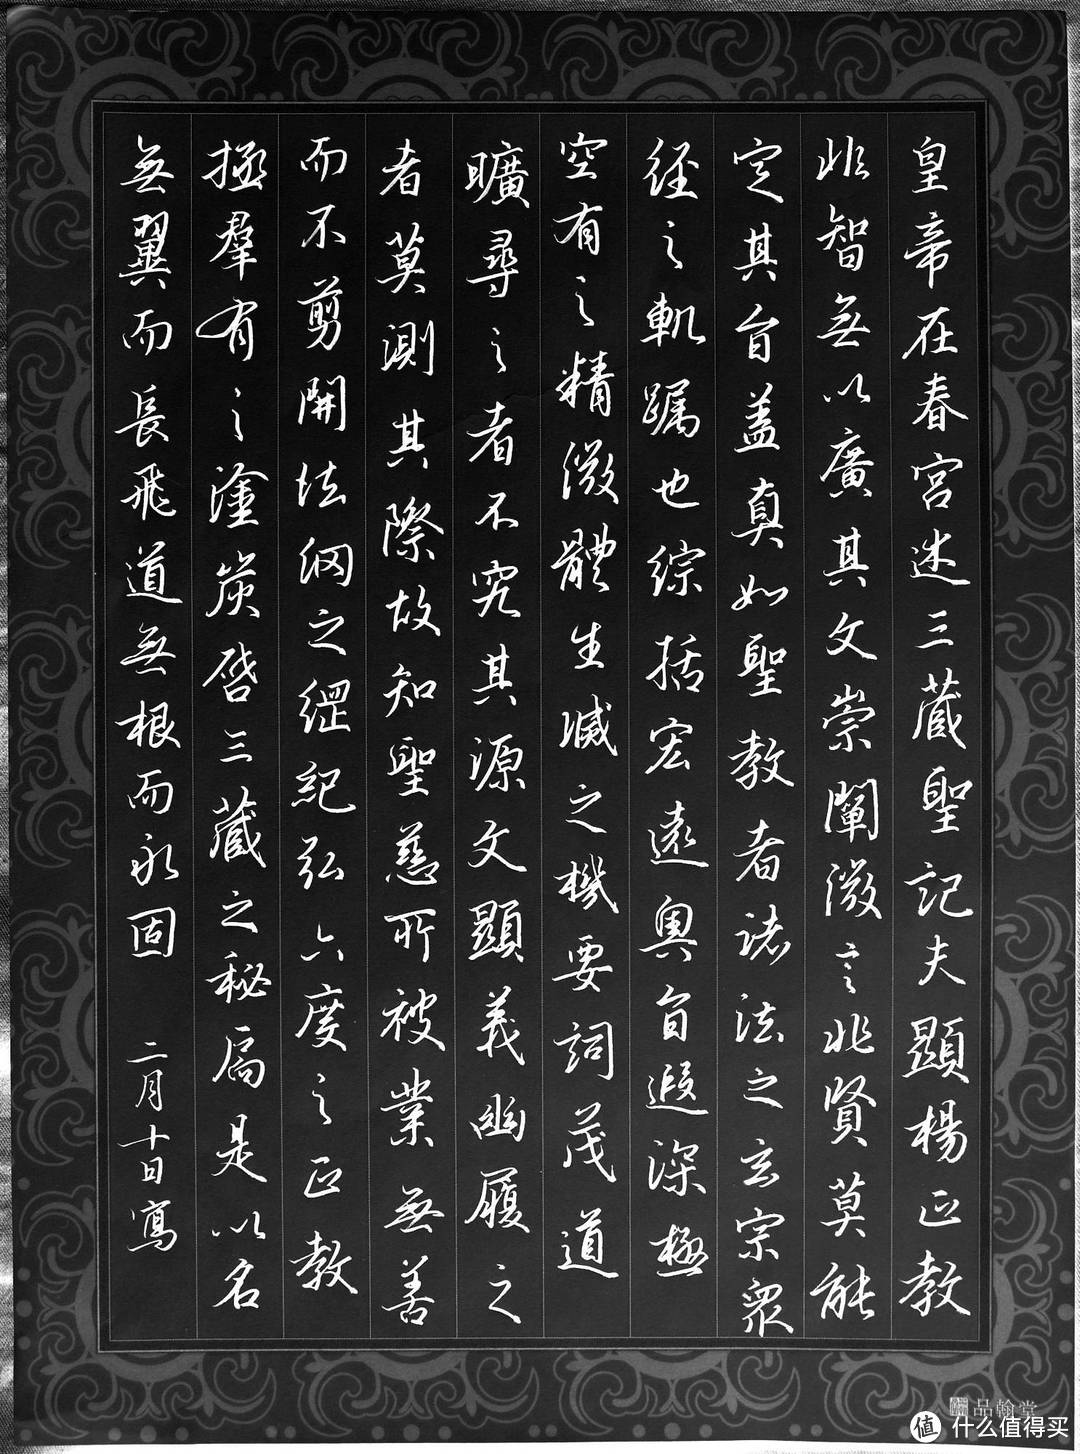 皇帝在春宮述三藏聖記夫顯楊正教
非智無以廣其文崇闡微言非賢莫能
定其旨盖真如聖教者諸法之玄宗眾
經之軌躅也綜括宏遠奧旨遐深極
空有之精微體生滅之機要詞茂道
曠尋之者不究其源文顯義幽履之
者莫測其際故知聖慈所被業無善
而不剪開法網之綱紀弘六度之正教
拯羣有之塗炭啓三藏之秘扃是以名
無翼而長飛道無根而永固
二月十日寫
品翰堂
值 什么值得买